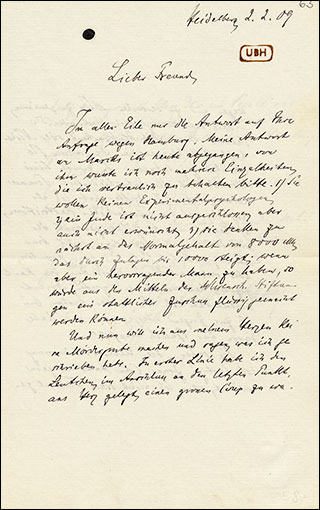 63
Heidelberg 2.2.09
UBH
Lieber Freund,
In aller Eile nur die Antwort auf Ihre
Anfrage wegen Hamburg. Meine Antwort
an Marcks ist heute abgegangen, von
ihm wusste ich noch mehrere Einzelheiten,
die ich vertraulich zu behalten bitte. 1) Sie
wollen keinen Experimentalpsychologen,
ein Jude ist nicht ausgeschlossen aber
auch nicht erwünscht; 2) sie denken zu
nächst an das Normalgehalt von 8000 M,
das durch Zulagen bis 10000 steigt; wenn
aber ein hervorragender Mann zu haben, so
würde aus den Mitteln der Wissensch. Stiftun-
gen ein stattlicher Zuschuss flüssig gemacht
werden können.
Und nun will ich aus meinem Herzen kei
ne Mördergrube machen und sagen, was ich ge
schrieben habe. In erster Linie habe ich den
Leutchen, im Anschluss an den letzten Punkt,
ans Herz gelegt, einen grossen Coup zu wa-